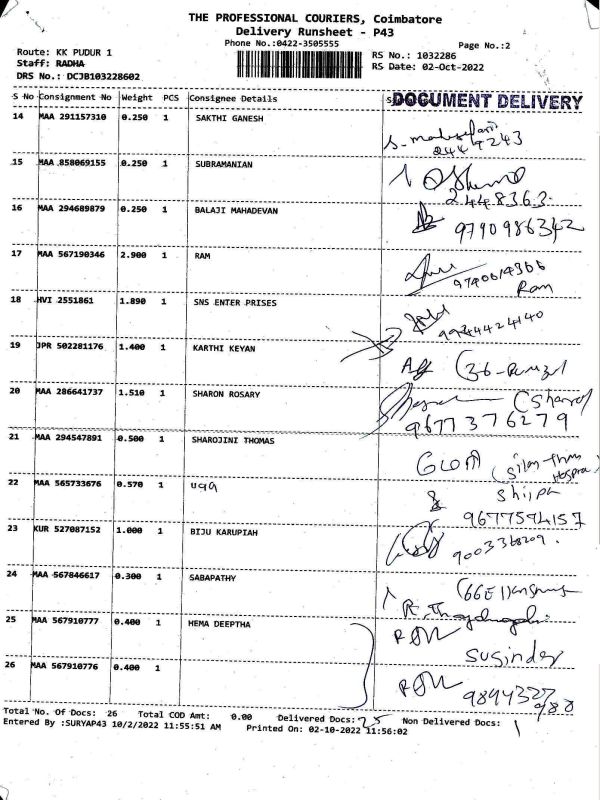 THE PROFESSIONAL COURIERS, Coimbatore
Delivery Runsheet - P43
Phone No.:0422-3505555
Page No.:2
Route: KK PUDUR 1
RS No.: 1032286
Staff: RADHA
RS Date: 02-Oct-2022
DRS No.: DCJB103228602
S No Consignment No Weight PCS Consignee Details
DOCUMENT DELIVERY
14 MAA 291157310 0.250 1 SAKTHI GANESH
2449243
15 MAA 858069155 0.250 1 SUBRAMANIAN
2448363
16 MAA 294689879 0.250 1 BALAJI MAHADEVAN
9790986342
17 MAA 567190346 2.900 1 RAM
Ram
18 HVI 2551861 1.890 1 SNS ENTER PRISES
9944424140
19 JPR 502281176 1.400 1 KARTHI KEYAN
20 MAA 286641737 1.510 1 SHARON ROSARY
9677376279
21 MAA 294547891 0.500 1 SHAROJINI THOMAS
22 MAA 565733676 0.570 1 uqa
9677594157
23 KUR 527087152 1.000 1 BIJU KARUPIAH
9003368209.
24 MAA 567846617 0.300 1 SABAPATHY
25 MAA 567910777 0.400 1 HEMA DEEPTHA
26 MAA 567910776 0.400 1
Total No. Of Docs: 26 Total COD Amt: 0.00 Delivered Docs: 25 Non Delivered Docs: 1
Entered By :SURYAP43 10/2/2022 11:55:51 AM Printed On: 02-10-2022 11:56:02